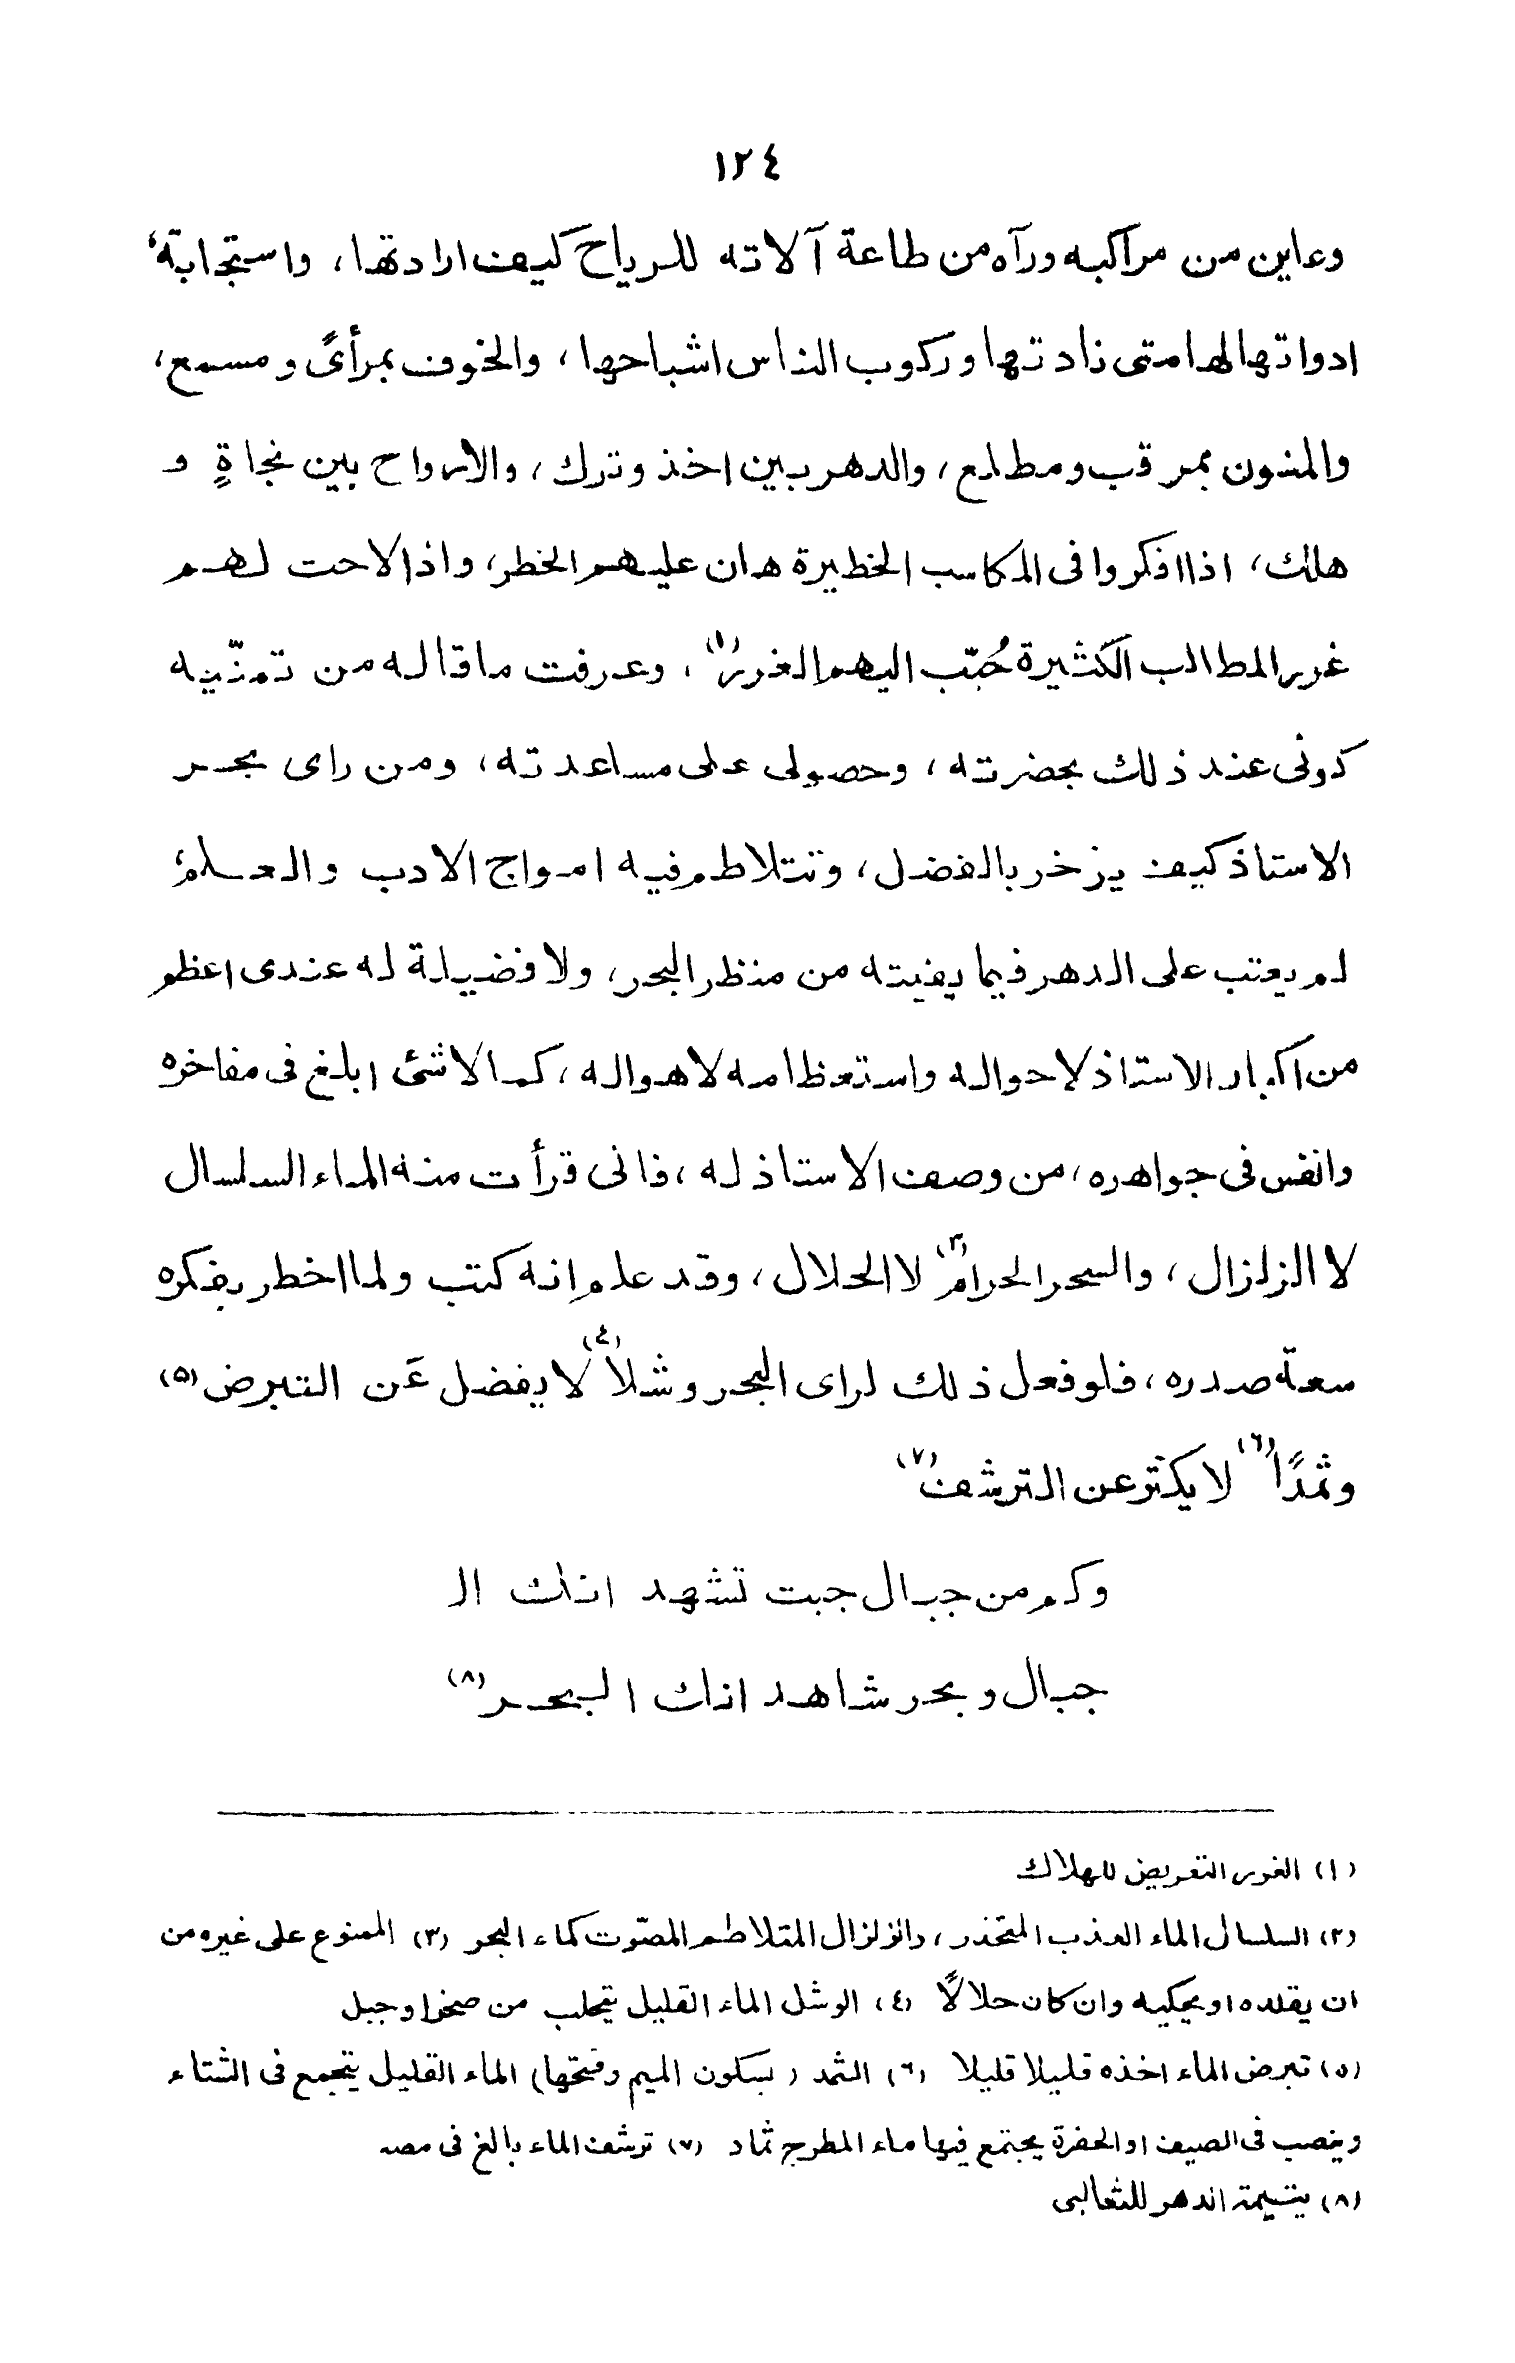 ١٢٤
وعاين من مراكبه ورآه من طاعة آلاته للرياح كيف ارادتها، واستجابة
ادواتها لها متى نادتها وركوب الناس اشباحها، والخوف بمرأىً ومسمع،
والمنون بمرقب ومطلع، والدهر بين اخذ وترك، والارواح بين نجاةٍ و
هلك، اذا افكروا فى المكاسب الخطيرة هان عليهم الخطر، واذا لاحت لهم
غرر المطالب الكثيرة حُبّب اليهم الغرر(١)، وعرفت ما قاله من تمنّيه
كونى عند ذلك بحضرته، وحصولى على مساعدته، ومن راى بحر
الاستاذ كيف يزخر بالفضل، وتتلاطم فيه امواج الادب والعلم،
لم يعتب على الدهر فيما يفيته من منظر البحر، ولا فضيلة له عندى اعظم
من اكبار الاستاذ لاحواله واستعظامه لاهواله، كما لا شئ ابلغ فى مفاخره
وانفس فى جواهره، من وصف الاستاذ له، فانى قرأت منه الماء السلسال
لا الزلزال، والسحر الحرام(٣) لا الحلال، وقد علم انه كتب ولما اخطر بفكره
سعة صدره، فلو فعل ذلك لراى البحر وشلاً(٤) لا يفضل عَن التبرض(٥)
وثمدًا(٦) لا يكثر عن الترشف(٧)
وكم من جبال جبت تشهد انك ال
جبال وبحر شاهد انك البحر(٨)
(١) الغرر التعريض للهلاك
(٢) السلسال الماء العذب المتحدر، والزلزال المتلاطم المصوّت كماء البحر (٣) الممنوع على غيره من
ان يقلده او يحكيه وان كان حلالًا (٤) الوشل الماء القليل يتحلب من صخر او جبل
(٥) تبرض الماء اخذه قليلا قليلا (٦) الثمد (بسكون الميم وفتحها) الماء القليل يتجمع فى الشتاء
وينضب فى الصيف او الحفرة يجتمع فيها ماء المطر ج ثماد (٧) ترشف الماء بالغ فى مصه
(٨) يتيمة الدهر للثعالبى